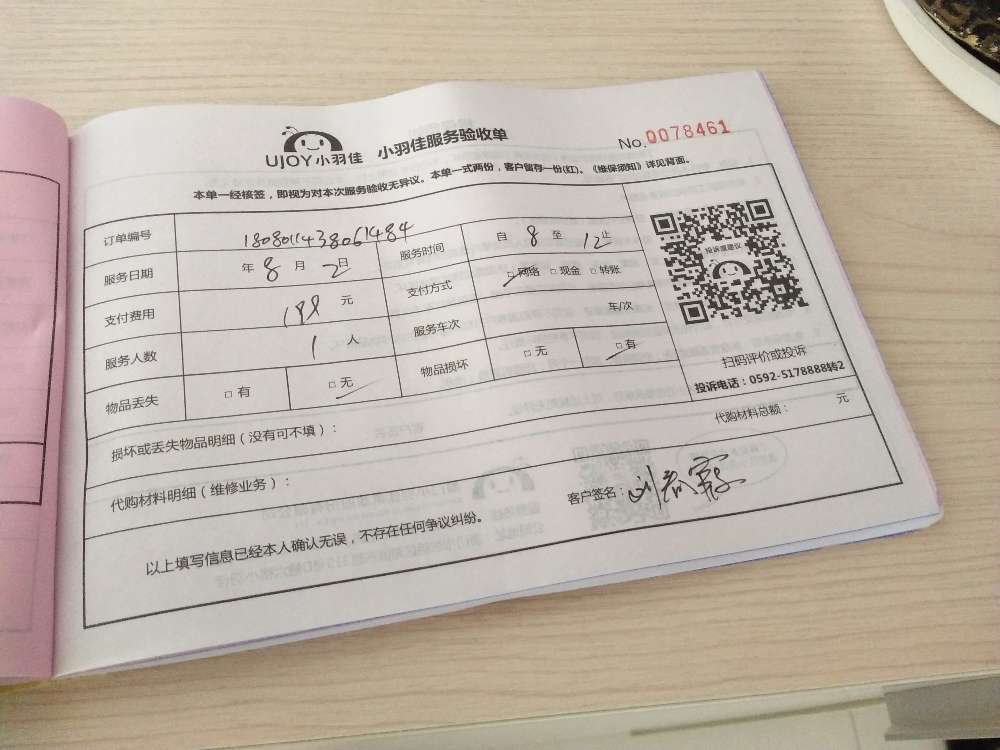 UJOY小羽佳 小羽佳服务验收单 No.0078461
本单一经接签，即视为对本次服务验收无异议。本单一式两份，客户留存一份(红)。《维保须知》详见背面。
订单编号 1808011438061484
服务日期 年 8 月 2日 服务时间 自 8 至 12止
支付费用 198 元 支付方式 □网络 □现金 □转账
服务人数 1 人 服务车次 车/次
物品丢失 □有 □无 物品损坏 □无 □有
投诉或建议
扫码评价或投诉
投诉电话：0592-5178888转2
损坏或丢失物品明细（没有可不填）：
代购材料明细（维修业务）： 代购材料总额： 元
以上填写信息已经本人确认无误，不存在任何争议纠纷。 客户签名：